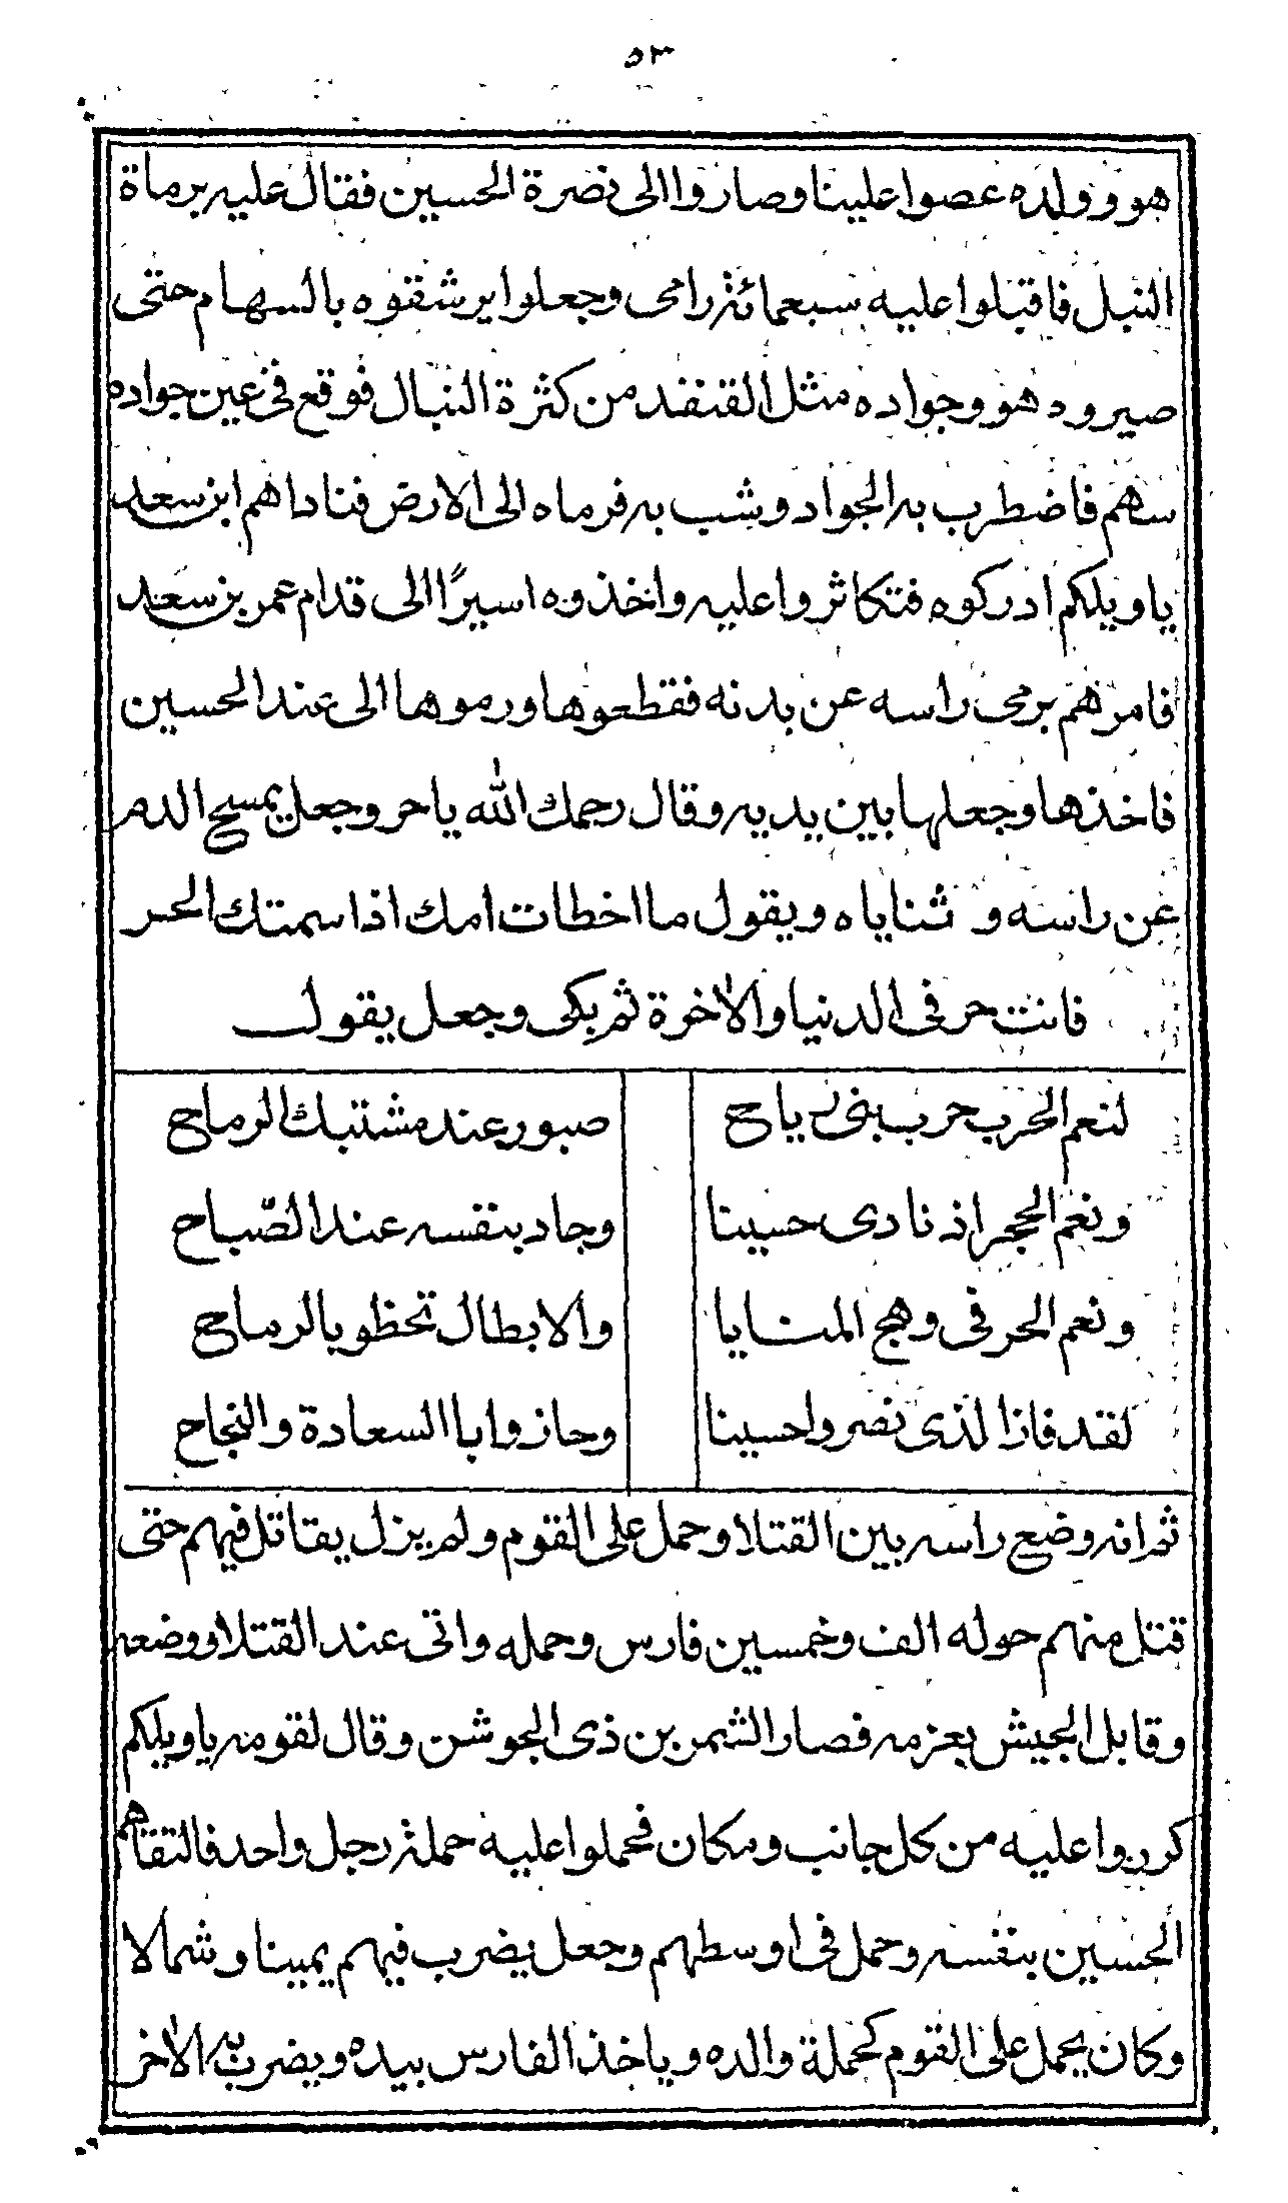 ٥٣
هو وولده عصوا علينا وصاروا الى نصرة الحسين فقال عليه برماة
النبل فاقبلوا عليه سبعمائة رامى وجعلوا يرشقوه بالسهام حتى
صيروه هو وجواده مثل القنفد من كثرة النبال فوقع فى عين جواده
سهم فاضطرب به الجواد وشب به فرماه الى الارض فناداهم ابن سعد
يا ويلكم ادركوه فتكاثروا عليه واخذوه اسيرًا الى قدام عمر بن سعد
فامرهم برمى راسه عن بدنه فقطعوها ورموها الى عند الحسين
فاخذها وجعلها بين يديه وقال رحمك الله يا حر وجعل يمسح الدم
عن راسه و ثناياه ويقول ما اخطات امك اذا سمتك الحر
فانت حر فى الدنيا والاخرة ثم بكى وجعل يقول
لنعم الحرب حرب بنى رياح صبور عند مشتبك الرماح
ونعم الحجر اذ نادى حسينا وجاد بنفسه عند الصّباح
ونعم الحر فى وهج المنايا والابطال تحظو بالرماح
لقد فاز الذى نصروا حسينا وحازوا با السعادة والنجاح
ثم انه وضع راسه بين القتلا وحمل على القوم ولم يزل يقاتل فيهم حتى
قتل منهم حوله الف وخمسين فارس وحمله واتى عند القتلا ووضعه
وقابل الجيش بعزمه فصار الشمر بن ذى الجوشن وقال لقومه يا ويلكم
كرروا عليه من كل جانب ومكان فحملوا عليه حملة رجل واحد فالتقاهم
الحسين بنفسه وحمل فى اوسطهم وجعل يضرب فيهم يمينا وشمالا
وكان يحمل على القوم كحملة والده وياخذ الفارس بيده ويضرب به الاخر